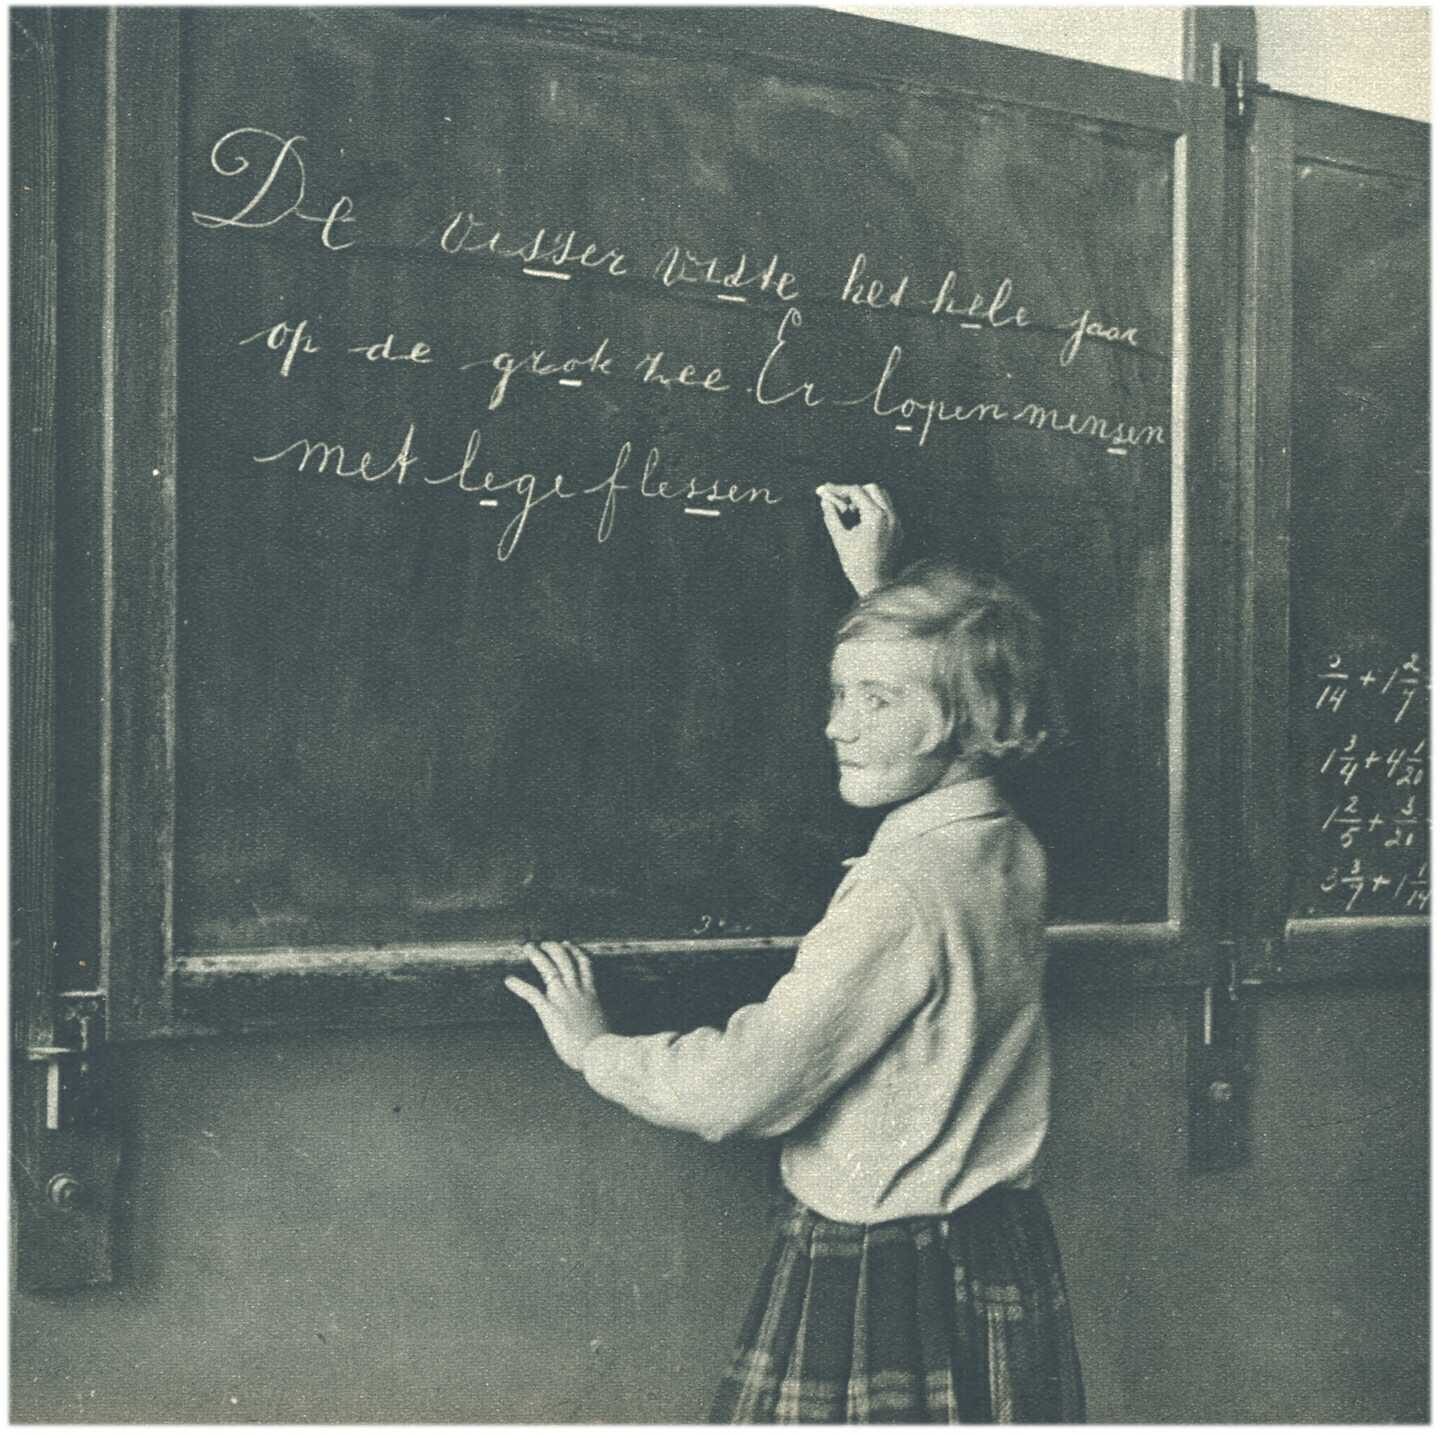 De visser viste het hele jaar
op de grote zee. Er lopen mensen
met lege flessen
/14 + 1 2/7
1 3/4 + 4 1/20
1 2/5 +
3 3/7 + 1 1/14